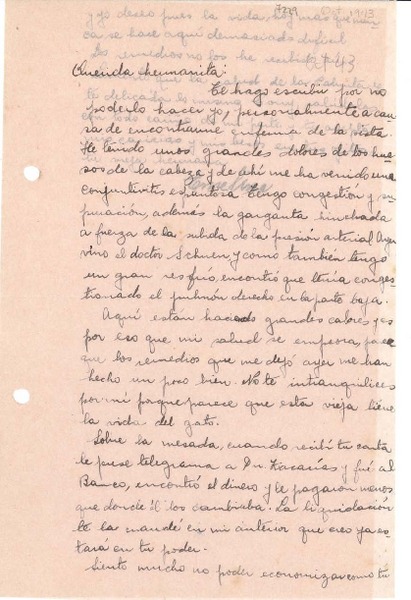 7229 Oct 1943
Querida hermanita:
Te hago escribir por no
poderlo hacer yo personalmente a cau
sa de encontrarme enferma de la vista
He tenido unos grandes dolores de los hue
sos de la cabeza y de ahí me ha venido una
conjuntivitis espantosa. Tengo congestión y su
puración, además la garganta hinchada
a fuerza de la subida de la presión arterial. Ayer
vino el doctor y como también tengo
un gran resfrío, encontró que tenía conges
tionado el pulmón derecho en la parte baja.
Aquí están haciendo grandes calores y es
por eso que mi salud se empeora, pare
ce que los remedios que me dejó ayer me han
hecho un poco bien. No te intranquilices
por mi porque parece que esta vieja tiene
la vida del gato.
Sobre la mesada, cuando recibí tu carta
le puse telegrama a Dn. Zacarías y fué al
Banco, encontró el dinero y le pagaron menos
que donde él los cambiaba. La liquidación
te la mandé en mi anterior que creo ya es
tará en tu poder.
Siento mucho no poder economizar como tu